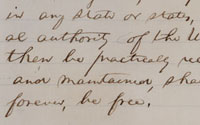 in any state or states,
al authority of the U
then be practically re
and maintained, sha
forever, be free.